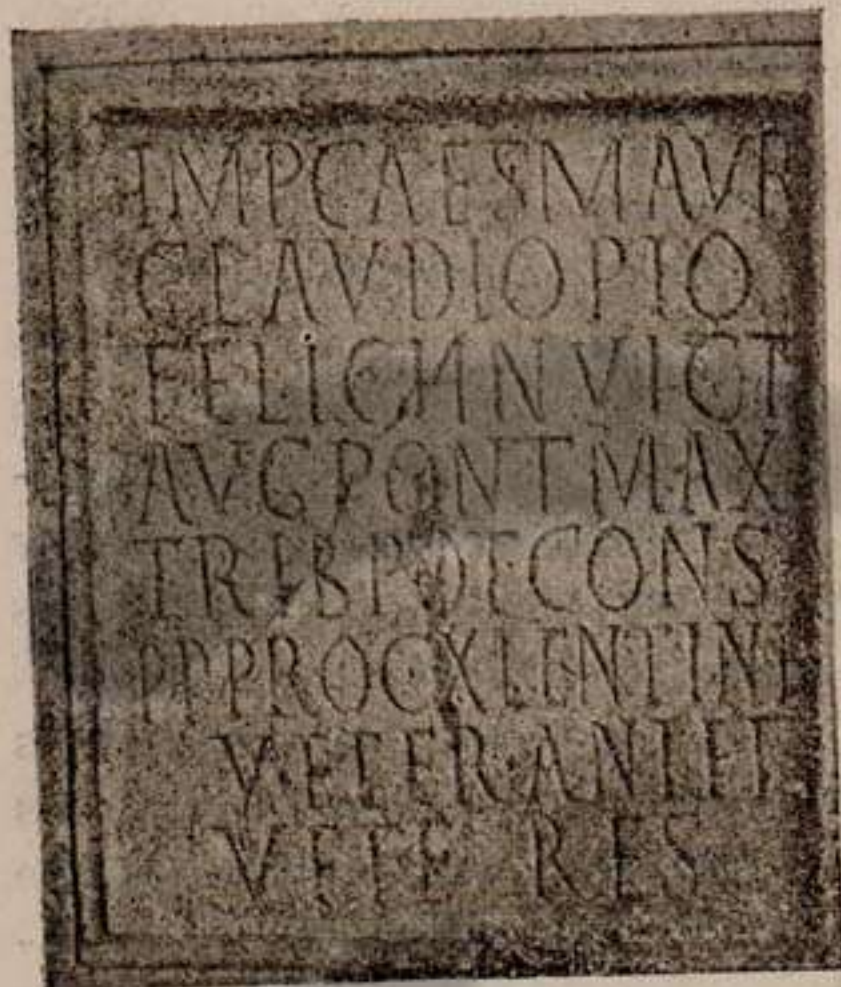 IMPCAESMAVR
CLAVDIOPIO
FELICIINVICT
AVGPONTMAX
TRIBPOTCONS
PPPROCVALENTINI
VETERANIET
VETERES